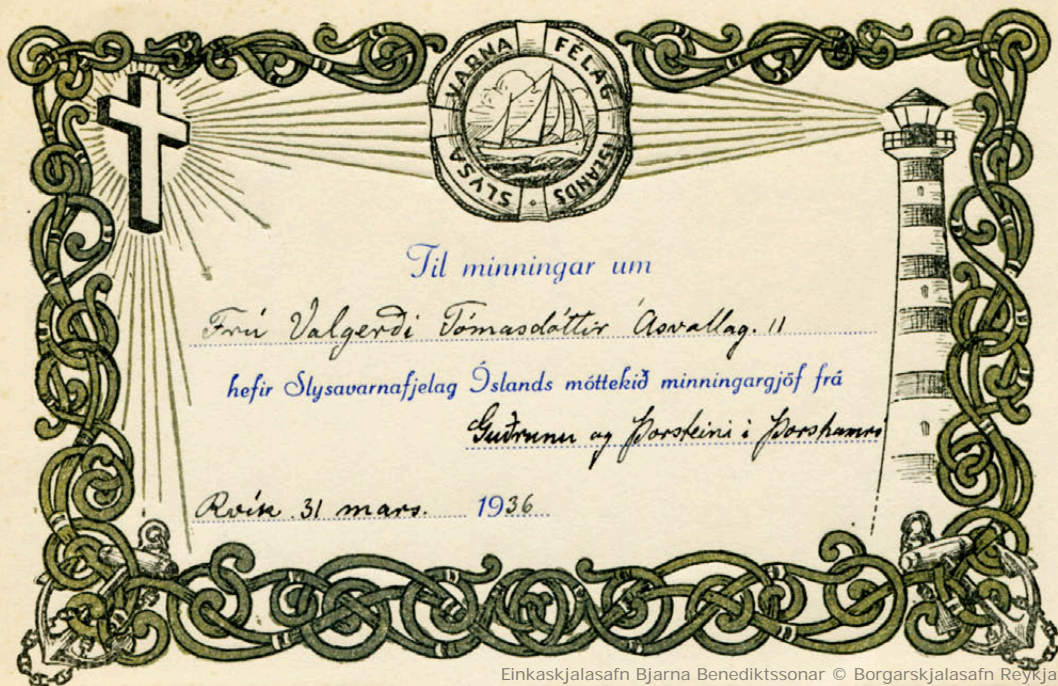 SLYSA VARNA FÉLAG ÍSLANDS
Til minningar um
Frú Valgerði Tómasdóttir Ásvallag. 11
hefir Slysavarnafjelag Íslands móttekið minningargjöf frá
Guðrunu og Þorsteini í Þorshamri
Rvík 31 mars. 1936
Einkaskjalasafn Bjarna Benediktssonar © Borgarskjalasafn Reykja